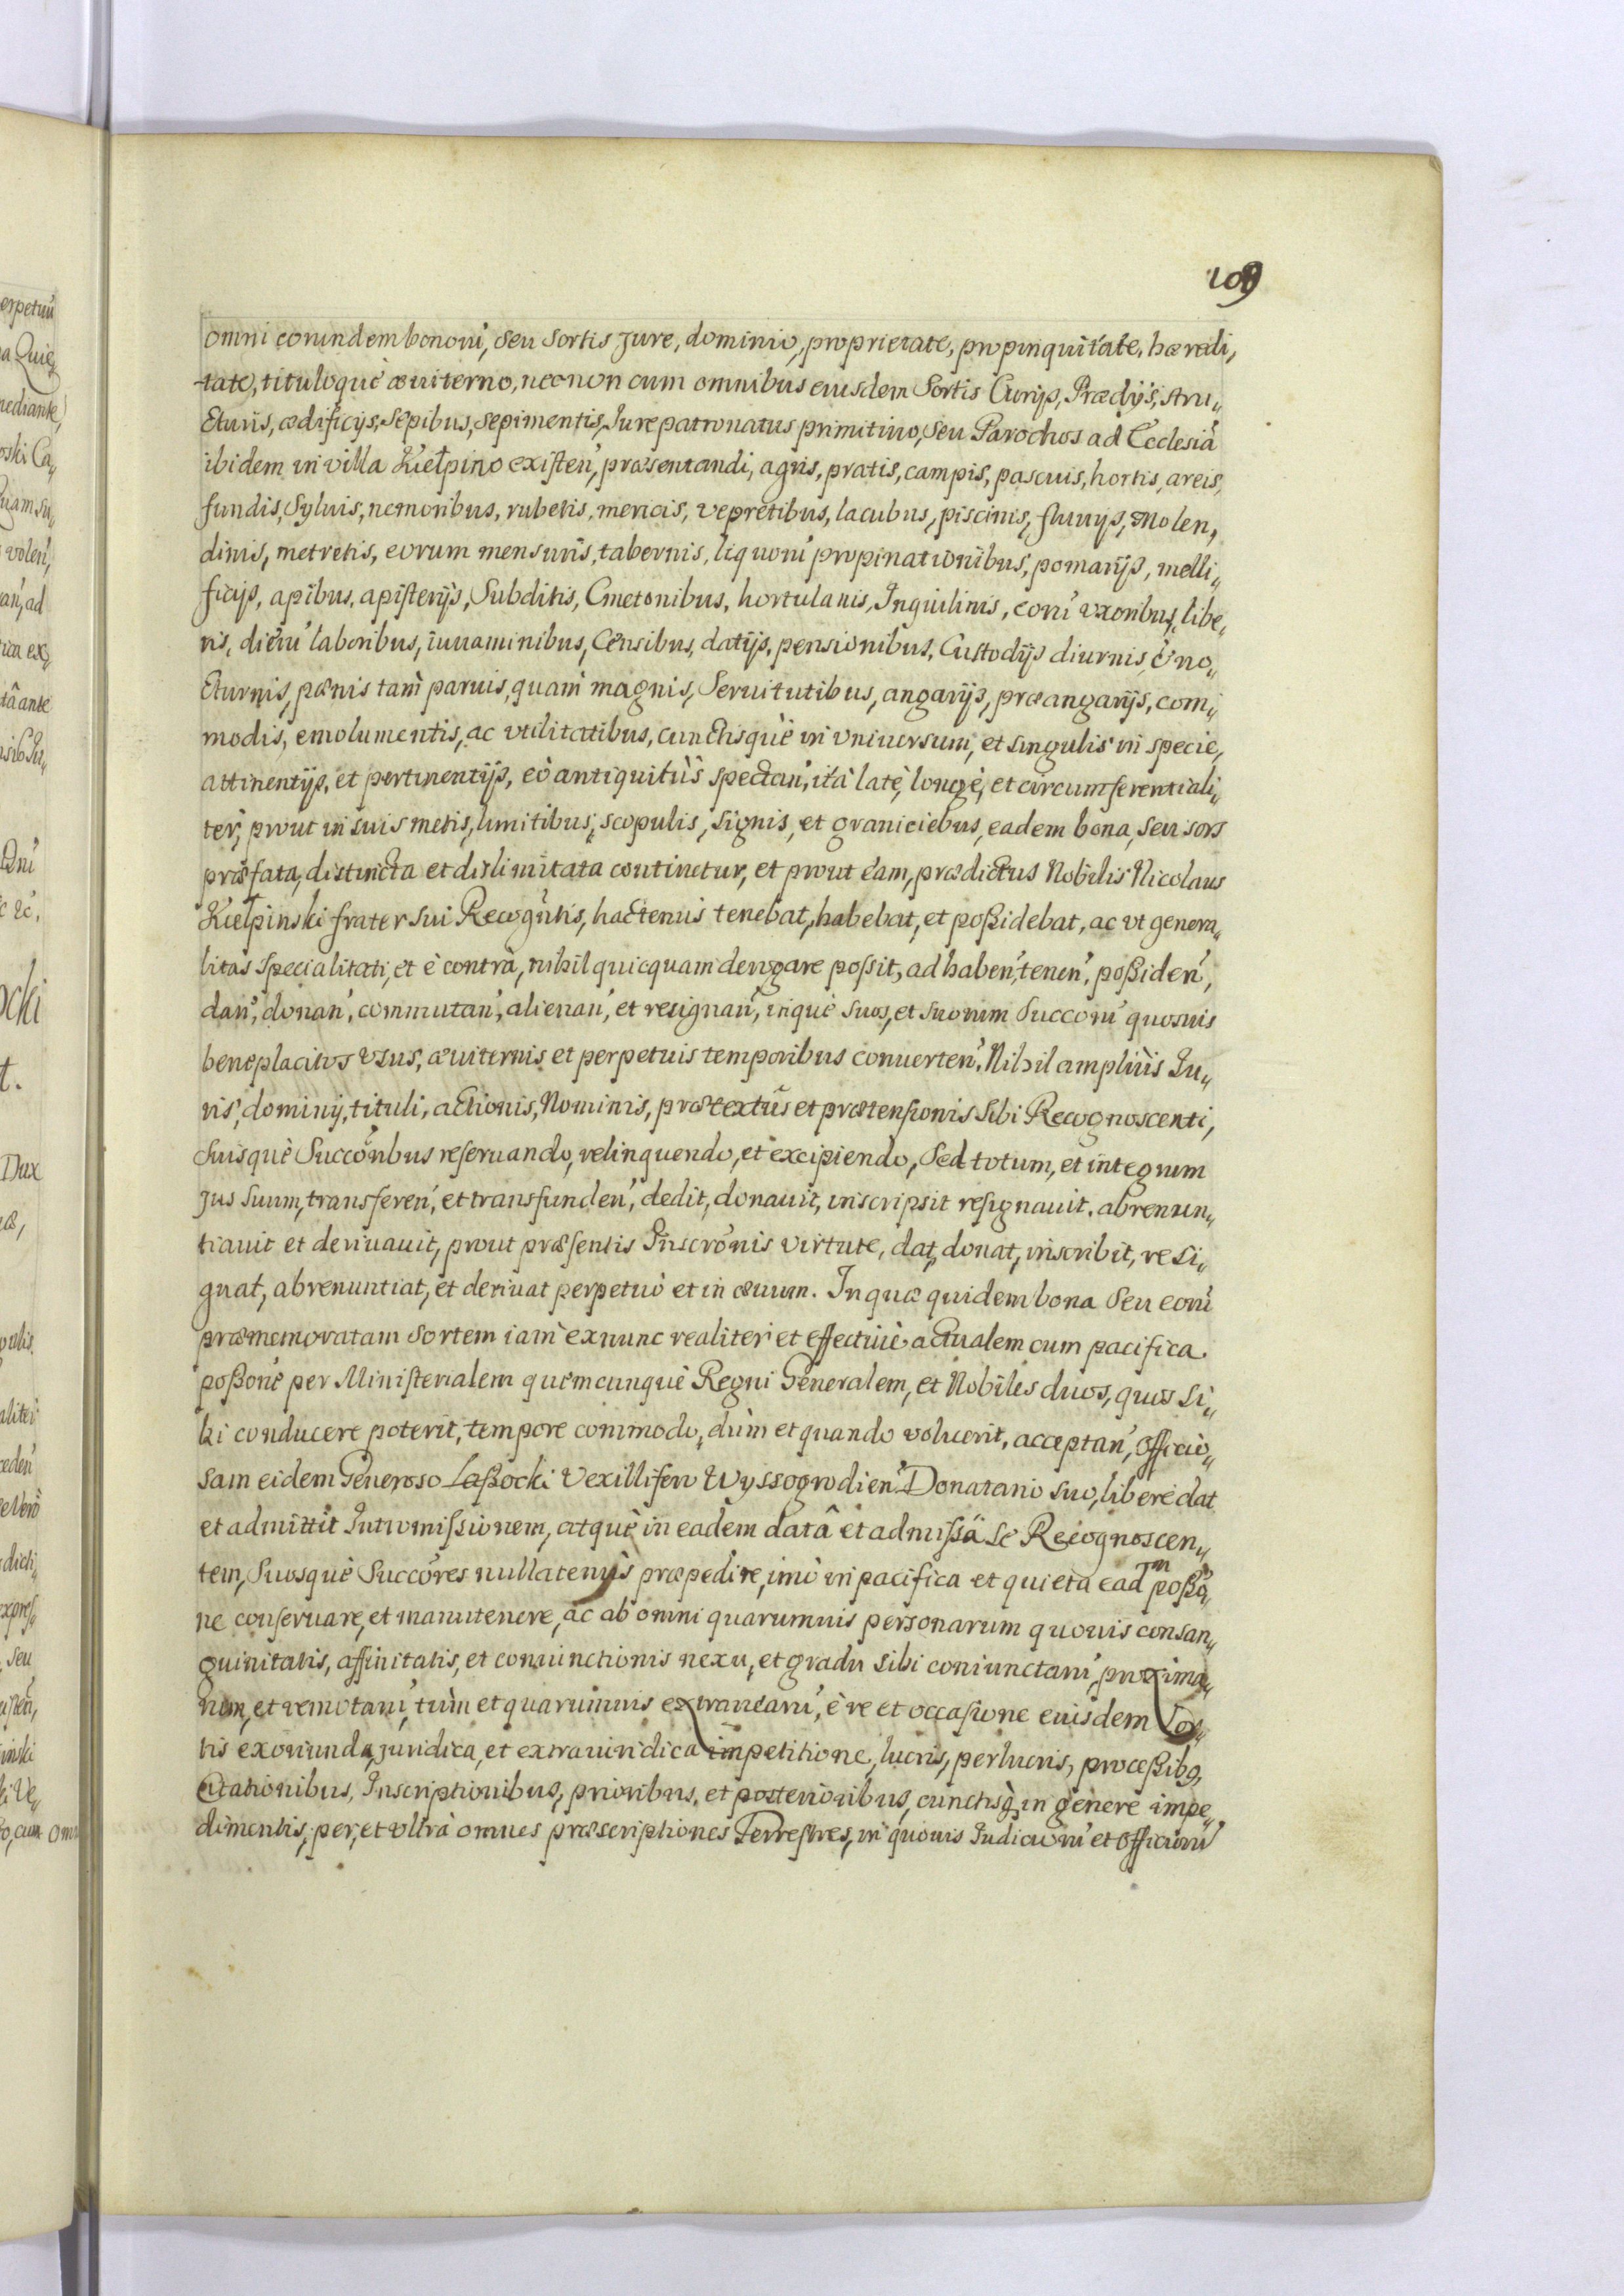 109
omni eorundem bonorū, seu Sortis Jure, dominio, proprietate, propinquitate, hæredi„
tate, tituloquè æuiterno, necnon cum omnibus eiusdem Sortis Curijs, Prædijs, stru„
cturis, ædificijs, sepibus, sepimentis, Iure patronatus primitiuo, seu Parochos ad Ecclesiā
ibidem in villa Kiełpino existen̄, præsentandi, agris, pratis, campis, pascuis, hortis, areis,
fundis, Syluis, nemoribus, rubetis, mericis, vepretibus, lacubus, piscinis, fluuijs, Molen„
dinis, metretis, eorum mensuris, tabernis, liquorū propinationibus, pomarijs, melli„
ficijs, apibus, apisterijs, Subditis, Cmetonibus, hortulanis, Inquilinis, eorū vxoribus, libe„
ris, dierū laboribus, iuuaminibus, Censibus, datijs, pensionibus, Custodijs diurnis, & no„
cturnis, pœnis tam̀ paruis, quam̀ magnis, Seruitutibus, angarijs, præangarijs, com„
modis, emolumentis, ac vtilitatibus, cunctisquè in vniuersum, et singulis in specie,
attinentijs, et pertinentijs, eò antiquitùs spectan̄, ità latè, longè, et circumferentiali„
ter, prout in suis metis, limitibus, scopulis, signis, et graniciebus, eadem bona, seu sors
præfata, distincta et dislimitata continetur, et prout eam, prædictus Nobilis Nicolaus
Kiełpinski frater sui Recogn̄tis, hactenus tenebat, habebat, et possidebat, ac vt genera„
litas specialitati, et è contrà, nihil quicquam derogare possit, ad haben̄, tenen̄, possiden̄,
dan̄, donan̄, commutan̄, alienan̄, et resignan̄, inquè suos, et suorum Succorū quosuis
beneplacitos vsus, æuiternis et perpetuis temporibus conuerten̄. Nihil ampliùs Ju„
ris, dominij, tituli, actionis, Nominis, prætextùs et prætensionis sibi Recognoscenti,
Suisquè Succōribus reseruando, relinquendo, et excipiendo, Sed totum, et integrum
Jus suum, transferen̄, et transfunden̄, dedit, donauit, inscripsit resignauit, abrenun„
tiauit et deriuauit, prout præsentis Inscrōnis virtute, dat, donat, inscribit, resi„
gnat, abrenuntiat, et deriuat perpetuò et in æuum. In quæ quidem bona seu eorū
præmemoratam Sortem iam̀ exnunc realiter et effectiuè actualem cum pacifica
possōne per Ministerialem quemcunquè Regni Generalem, et Nobiles duos, quos si„
bi conducere poterit, tempore commodo, dùm et quando voluerit, acceptan̄, officio„
sam eidem Generoso Lassocki Vexillifero Wyssogrodien̄ Donatario suo, liberè dat
et admittit Intromissionem, atquè in eadem datâ et admissâ se Recognoscen„
tem, Suosquè Succōres nullatenùs præpedire, imò in pacifica et quieta eadm possō„
ne conseruare, et manutenere, ac ab omni quarumuis personarum quouis consan„
guinitatis, affinitatis, et coniunctionis nexu, et gradu sibi coniunctarū, proxima„
rum, et remotarū, tùm et quarumuis extranearū, è re et occasione eiusdem Sor„
tis exoriunda, juridica, et extraiuridica impetitione, lucris, perlucris, processibq,
citationibus, Inscriptionibus, prioribus, et posterioribus, cunctisq; in genere impe„
dimentis, per, et vltrà omnes præscriptiones Terrestres, in quouis Iudiciorū et officiorū